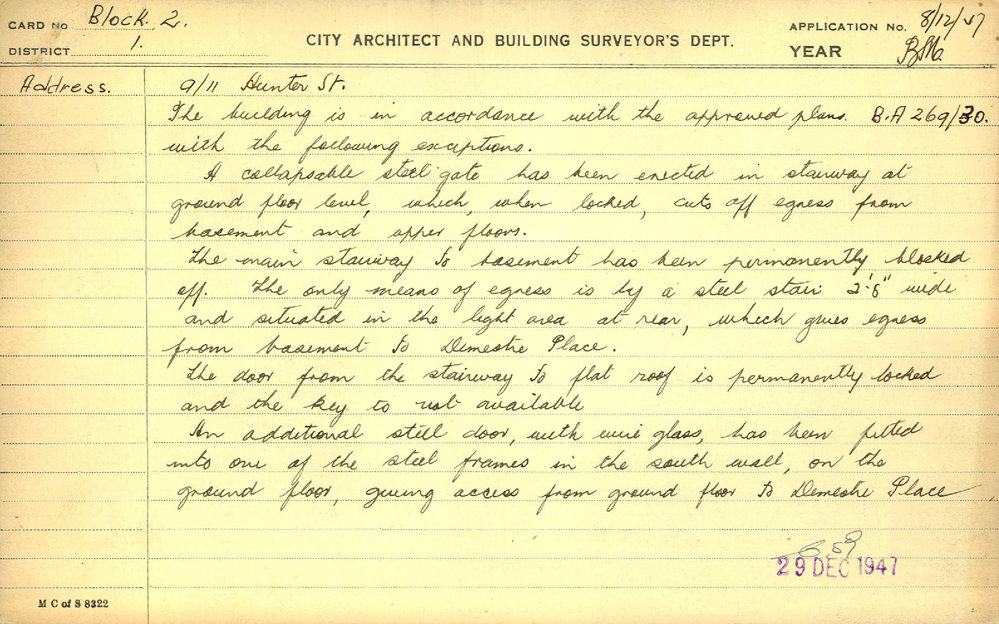 CARD No Block. 2.
DISTRICT 1.
CITY ARCHITECT AND BUILDING SURVEYOR'S DEPT.
APPLICATION No. 8/12/47
YEAR
Address. 9/11 Hunter St.
The building is in accordance with the approved plans. B.A 269/30.
with the following exceptions.
A collapsable steel gate has been erected in stairway at
ground floor level, which, when locked, cuts off egress from
basement and upper floors.
The main stairway to basement has been permanently blocked
off. The only means of egress is by a steel stair 2'-6" wide
and situated in the light area at rear, which gives egress
from basement to Demestre Place.
The door from the stairway to flat roof is permanently locked
and the key to not available
An additional steel door, with wire glass, has been fitted
into one of the steel frames in the south wall, on the
ground floor, giving access from ground floor to Demestre Place
29 DEC 1947
M C of S 8322